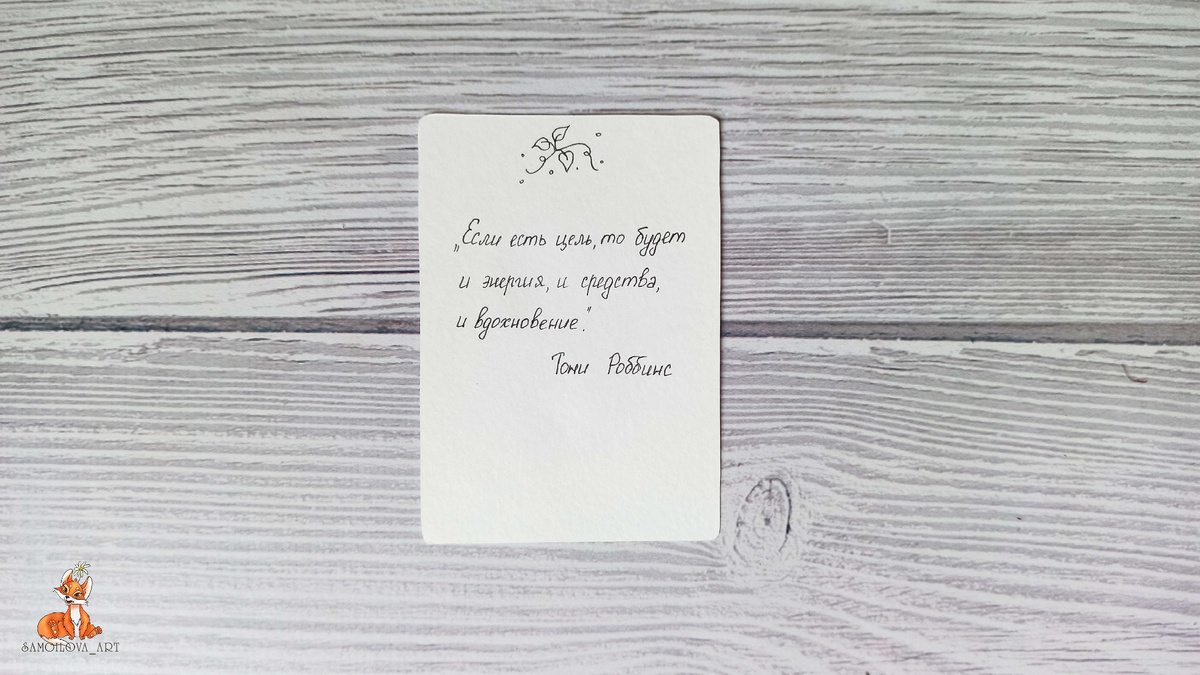 „Если есть цель, то будет
и энергия, и средства,
и вдохновение."
Тони Роббинс
SAMOILOVA_ART